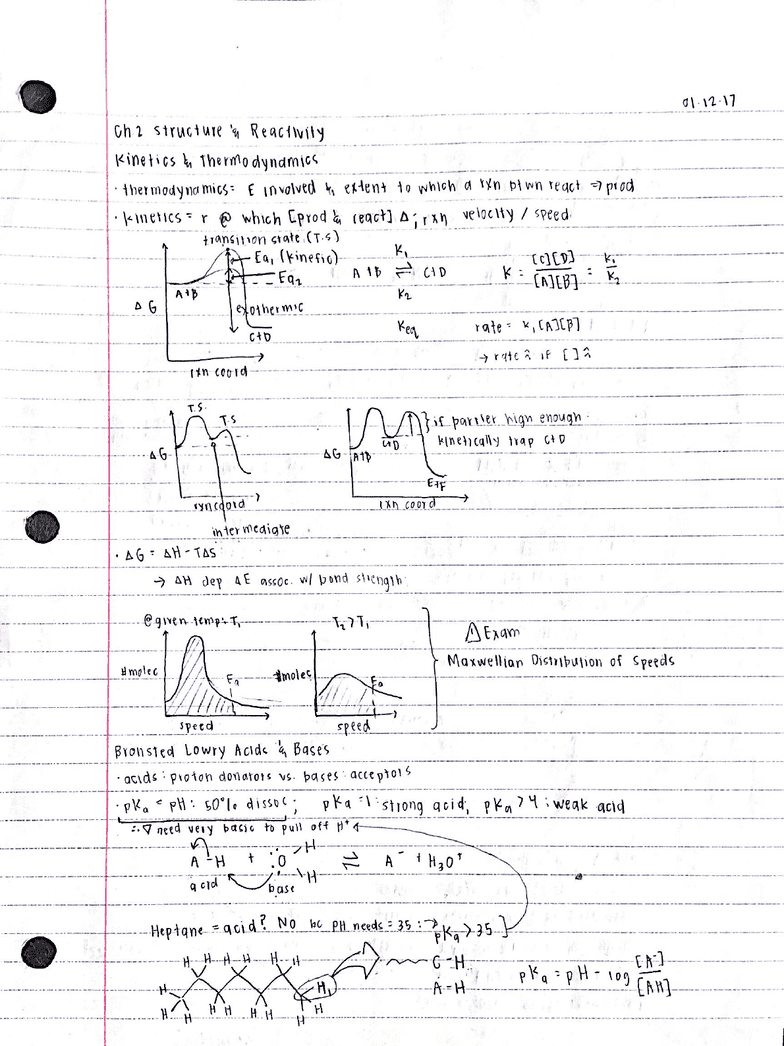 01·12·17
Ch 2 Structure & Reactivity
Kinetics & Thermodynamics
· thermodynamics = E involved & extent to which a rxn btwn react ⇒ prod
· kinetics = r @ which [prod & react] Δ; rxn velocity / speed
transition state (T.S)
Ea₁ (kinetic)
Ea₂
A+B
exothermic
C+D
ΔG
rxn coord
K₁
A+B ⇌ C+D
K₂
Keq
K = [C][D] / [A][B] = K₁ / K₂
rate = K₁[A][B]
→ rate ↑ if [ ] ↑
T.S.
T.S
ΔG
rxn coord
intermediate
ΔG
A+B
C+D
E+F
rxn coord
} if barrier high enough
kinetically trap C+D
· ΔG = ΔH - TΔS
→ ΔH dep ΔE assoc. w/ bond strength
@ given temp = T₁
T₂ > T₁
#molec
Ea
speed
#molec
Ea
speed
Exam
Maxwellian Distribution of Speeds
Bronsted Lowry Acids & Bases
· acids: proton donators vs. bases: acceptors
· pKa = pH: 50% dissoc; pKa = 1: strong acid, pKa > 4: weak acid
∴ need very basic to pull off H⁺
A-H + :O H H ⇌ A⁻ + H₃O⁺
acid
base
Heptane = acid? NO bc pH needs = 35 ∴ → pKa > 35
H H H H H H
H H H H H H H H H H
C-H
A-H
pKa = pH - log [A⁻] / [AH]